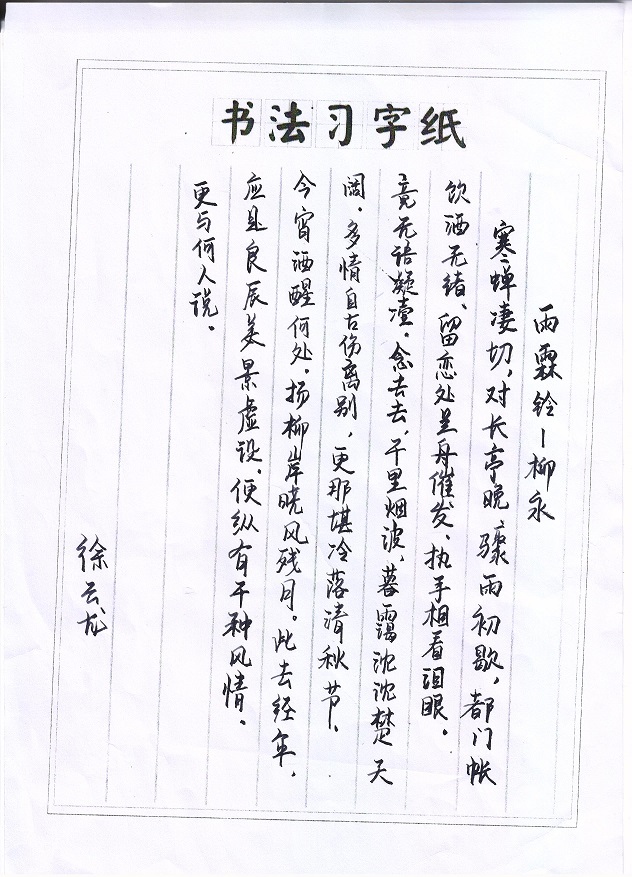 书法习字纸
雨霖铃—柳永
寒蝉凄切，对长亭晚、骤雨初歇，都门帐
饮酒无绪、留恋处兰舟催发、执手相看泪眼。
竟无语凝噎。念去去，千里烟波，暮霭沈沈楚天
阔。多情自古伤离别，更那堪冷落清秋节。
今宵酒醒何处。扬柳岸晓风残月。此去经年，
应是良辰美景虚设。便纵有千种风情。
更与何人说。
徐云龙